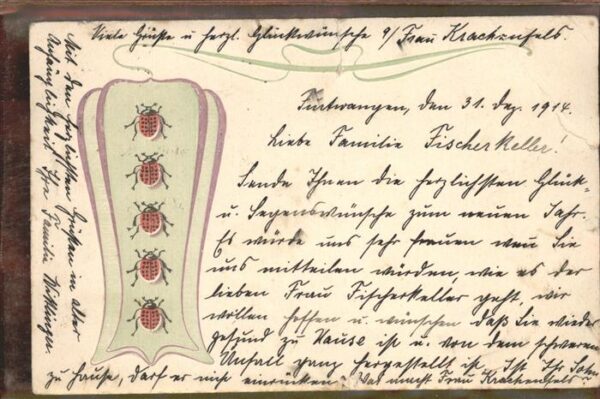 Viele Grüße u herzl. Glückwünsche a/ Frau Krachenfels.
Furtwangen, den 31. Dez. 1914.
Liebe Familie Fischerkeller!
Sende Ihnen die herzlichsten Glück-
u. Segenswünsche zum neuen Jahr.
Es würde uns sehr freuen wen Sie
uns mitteilen würden, wie es der
lieben Frau Fischerkeller geht, wir
wollen hoffen u. wünschen daß Sie wieder
gesund zu Hause ist u von dem schweren
Unfall ganz hergestellt ist. Ist Ihr Sohn
zu Hause, darf er nicht einrücken? Was macht Frau Krachenfels?
Mit den herzlichsten Grüßen in alter
Anhänglichkeit Ihre Familie